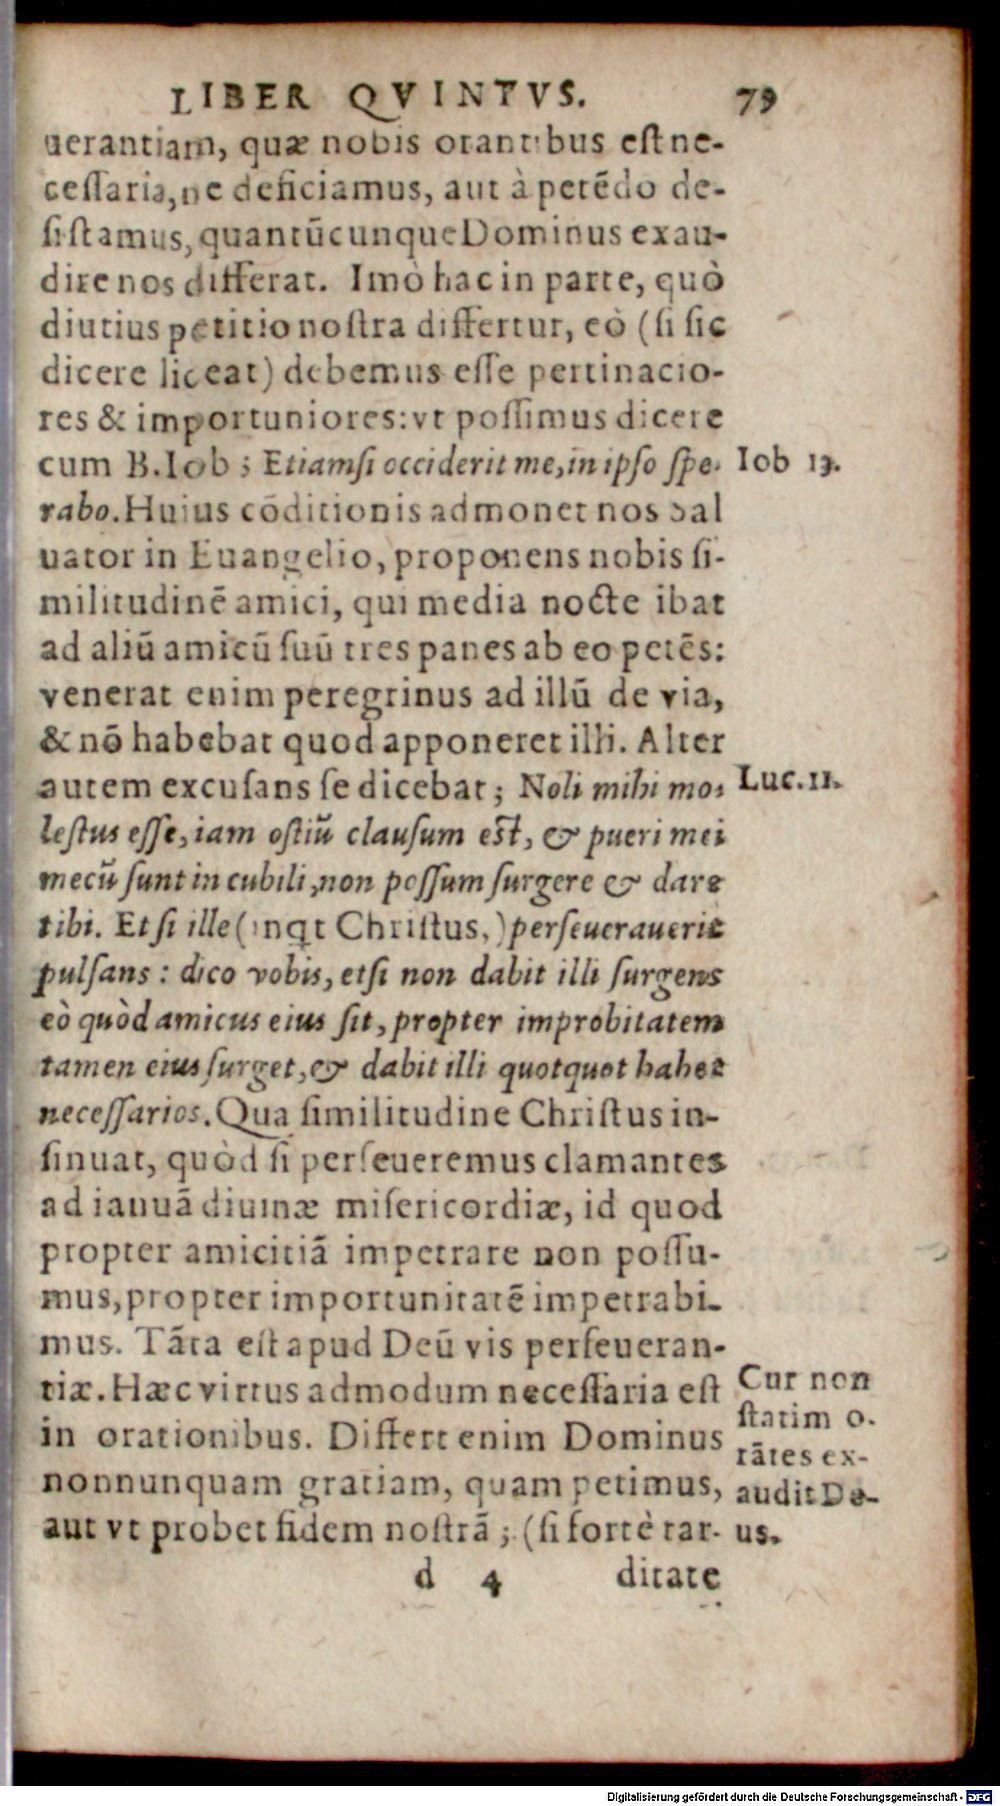 LIBER QVINTVS. 79
uerantiam, quæ nobis orantibus est ne-
cessaria, ne deficiamus, aut à petēdo de-
sistamus, quantūcunque Dominus exau-
dire nos differat. Imò hac in parte, quò
diutius petitio nostra differtur, eò (si sic
dicere liceat) debemus esse pertinacio-
res & importuniores: vt possimus dicere
cum B. Iob; Etiamsi occiderit me, in ipso spe-
Iob 13.
rabo. Huius cōditionis admonet nos Sal
uator in Euangelio, proponens nobis si-
militudinē amici, qui media nocte ibat
ad aliū amicū suū tres panes ab eo petēs:
venerat enim peregrinus ad illū de via,
& nō habebat quod apponeret illi. Alter
autem excusans se dicebat; Noli mihi mo-
Luc. 11.
lestus esse, iam ostiū clausum est, & pueri mei
mecū sunt in cubili, non possum surgere & dare
tibi. Et si ille (inqt Christus,) perseuerauerit
pulsans: dico vobis, etsi non dabit illi surgens
eò quòd amicus eius sit, propter improbitatem
tamen eius surget, & dabit illi quotquot habet
necessarios. Qua similitudine Christus in-
sinuat, quòd si perseueremus clamantes
ad ianuā diuinæ misericordiæ, id quod
propter amicitiā impetrare non possu-
mus, propter importunitatē impetrabi-
mus. Tāta est apud Deū vis perseueran-
tiæ. Hæc virtus admodum necessaria est
in orationibus. Differt enim Dominus
nonnunquam gratiam, quam petimus,
aut vt probet fidem nostrā; (si fortè tar-
Cur non
statim o-
rātes ex-
audit De-
us.
d 4 ditate
Digitalisierung gefördert durch die Deutsche Forschungsgemeinschaft - DFG